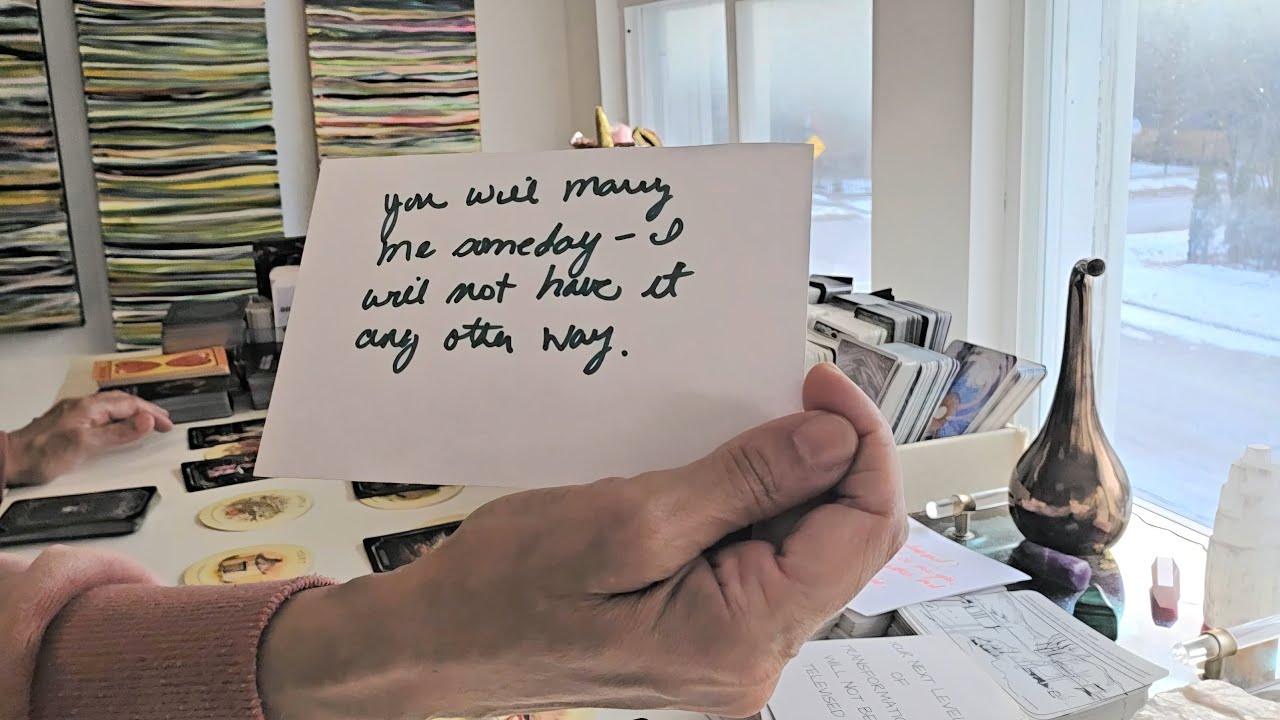 you will marry
me someday - I
will not have it
any other way.
OUR NEXT LEVEL
OF
TRANSFORMATION
WILL NOT BE
TELEVISED